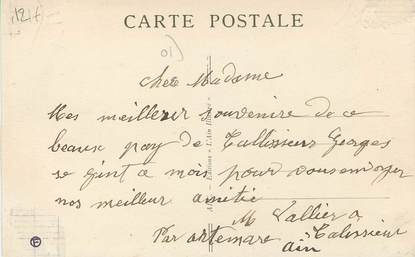 1217
CARTE POSTALE
10)
Chere Madame
Mes meilleur souvenire de ce
beaux pay de Tallissieux Georges
se gint a mois pour vous envoyer
nos meilleur amitie
M Lallier a
Par artemare Talissieu
ain